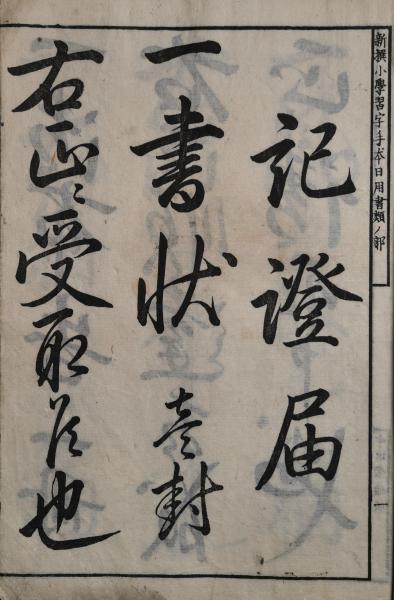 新撰小學習字手本日用書類ノ部
記證届
一書状壱封
右正ニ受取候也
一